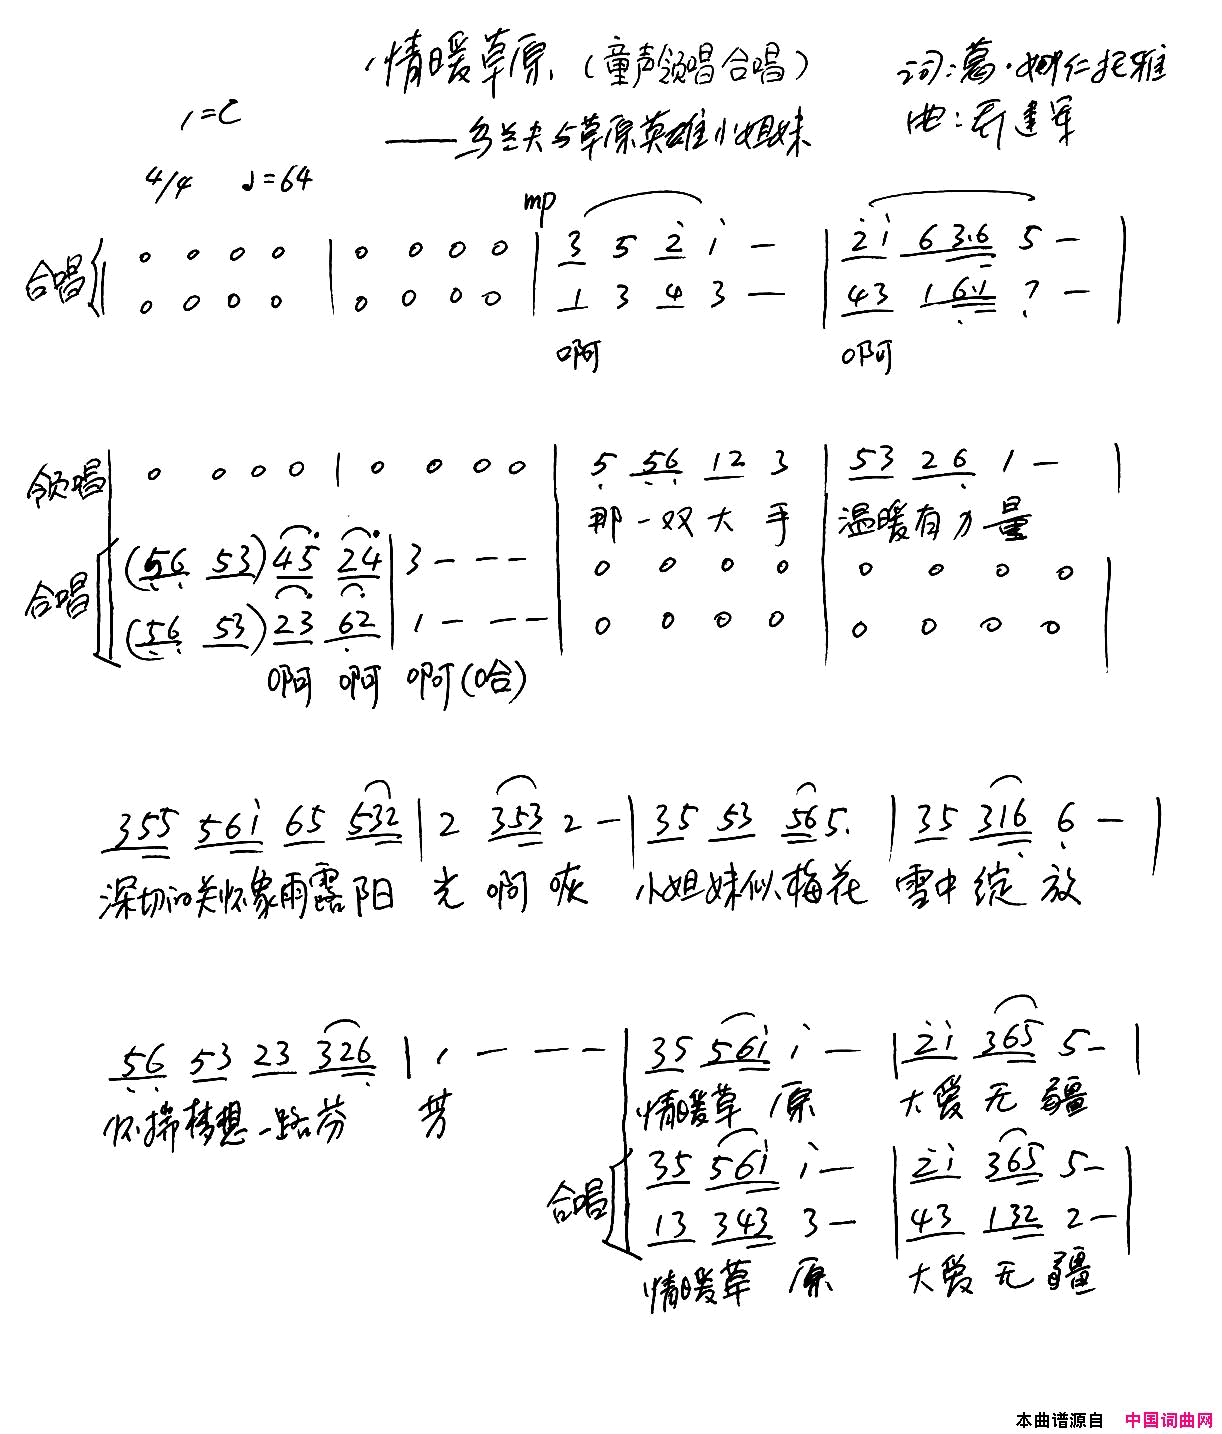 情暖草原（童声领唱合唱） 词：葛·娜仁托雅
1=C ——乌兰夫与草原英雄小姐妹 曲：乔建军
4/4 ♩=64
mp
合唱 0 0 0 0 | 0 0 0 0 | 3 5 2̇ 1̇ — | 2̇1̇ 6 3.6 5 — |
0 0 0 0 | 0 0 0 0 | 1 3 4 3 — | 43 1 6.1 7 — |
啊 啊
领唱 0 0 0 0 | 0 0 0 0 | 5 56 12 3 | 53 26 1 — |
那一双大手 温暖有力量
合唱 (56 53) 45 24 | 3 — — — | 0 0 0 0 | 0 0 0 0 |
(56 53) 23 62 | 1 — — — | 0 0 0 0 | 0 0 0 0 |
啊 啊 啊(哈)
355 561̇ 65 532 | 2 353 2 — | 35 53 56 5. | 35 316 6 — |
深切的关怀象雨露阳 光 啊 咴 小姐妹似梅花 雪中绽 放
56 53 23 326 | 1 — — — | 35 561̇ 1̇ — | 2̇1̇ 365 5 — |
怀揣梦想一路芬 芳 情暖草 原 大爱无 疆
合唱 35 561̇ 1̇ — | 2̇1̇ 365 5 — |
13 343 3 — | 43 132 2 — |
情暖草 原 大爱无 疆
本曲谱源自 中国词曲网